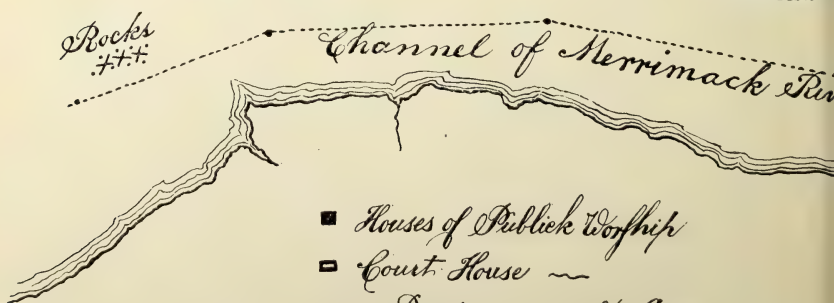 Rocks
Channel of Merrimack
Houses of Publick Worship
Court House